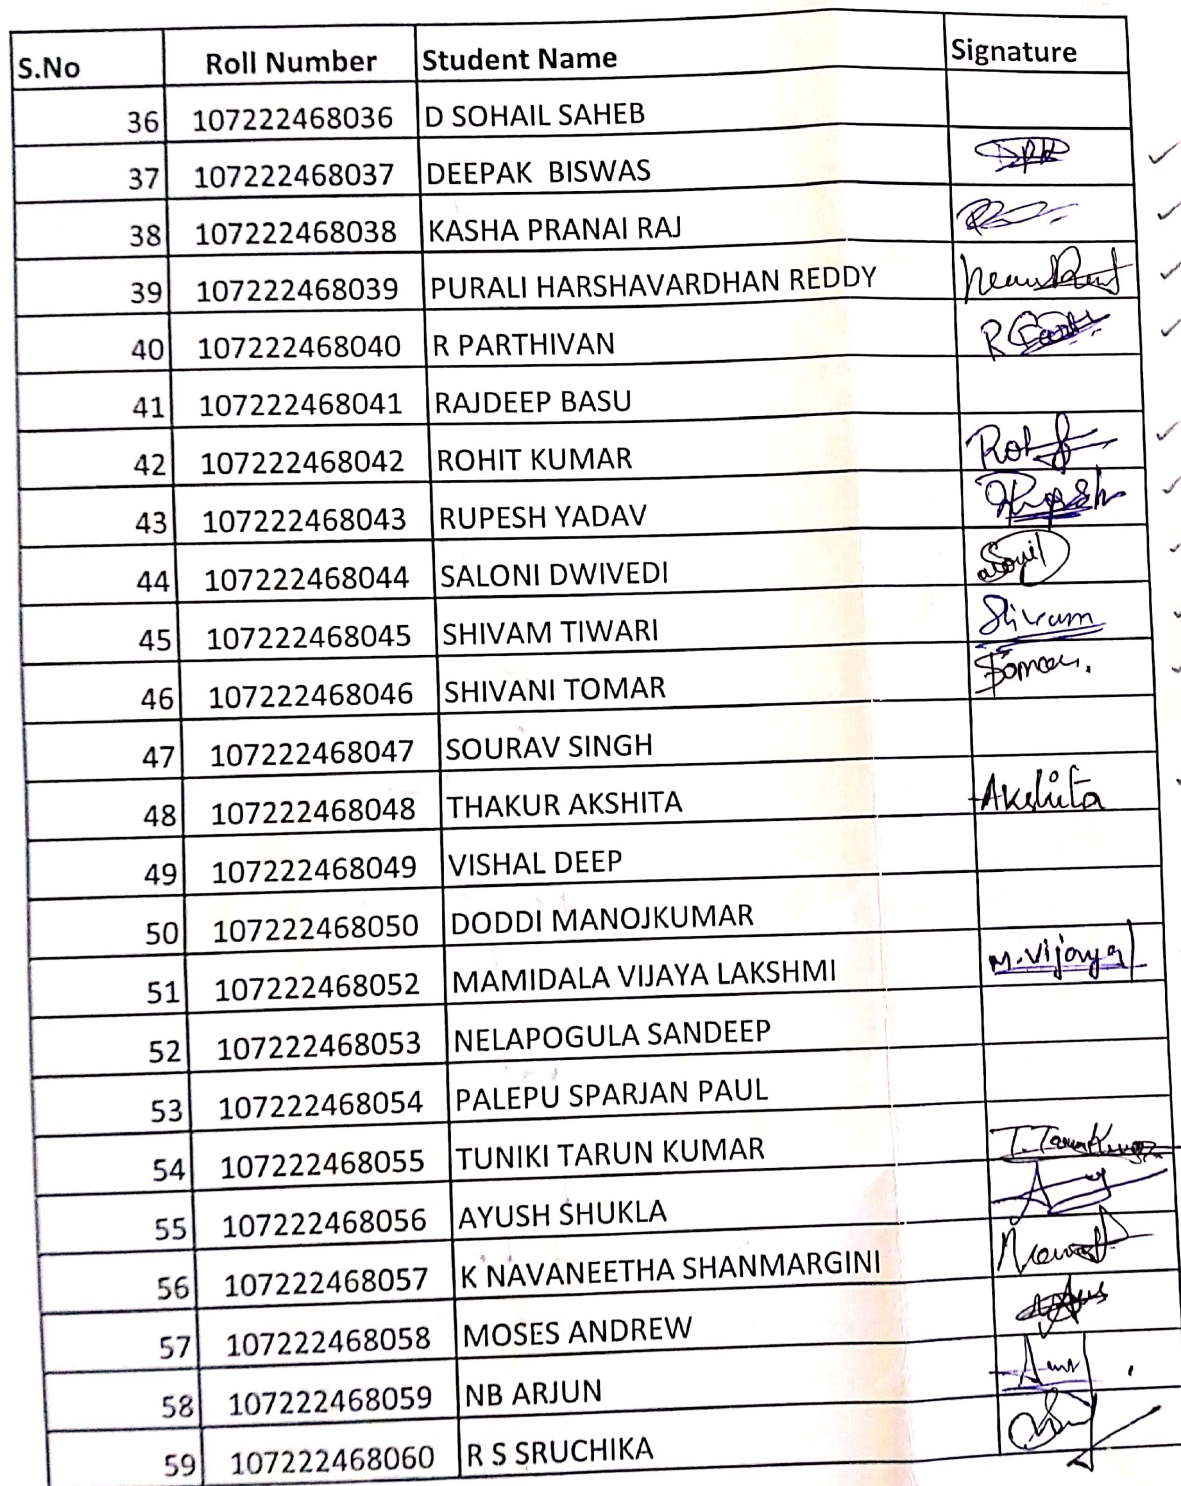 S.No Roll Number Student Name Signature
36 107222468036 D SOHAIL SAHEB
37 107222468037 DEEPAK BISWAS
38 107222468038 KASHA PRANAI RAJ
39 107222468039 PURALI HARSHAVARDHAN REDDY
40 107222468040 R PARTHIVAN R
41 107222468041 RAJDEEP BASU
42 107222468042 ROHIT KUMAR
43 107222468043 RUPESH YADAV Rupesh
44 107222468044 SALONI DWIVEDI
45 107222468045 SHIVAM TIWARI Shivam
46 107222468046 SHIVANI TOMAR
47 107222468047 SOURAV SINGH
48 107222468048 THAKUR AKSHITA Akshita
49 107222468049 VISHAL DEEP
50 107222468050 DODDI MANOJKUMAR
51 107222468052 MAMIDALA VIJAYA LAKSHMI M.Vijaya
52 107222468053 NELAPOGULA SANDEEP
53 107222468054 PALEPU SPARJAN PAUL
54 107222468055 TUNIKI TARUN KUMAR T.TarunKumar
55 107222468056 AYUSH SHUKLA
56 107222468057 K NAVANEETHA SHANMARGINI
57 107222468058 MOSES ANDREW
58 107222468059 NB ARJUN
59 107222468060 R S SRUCHIKA